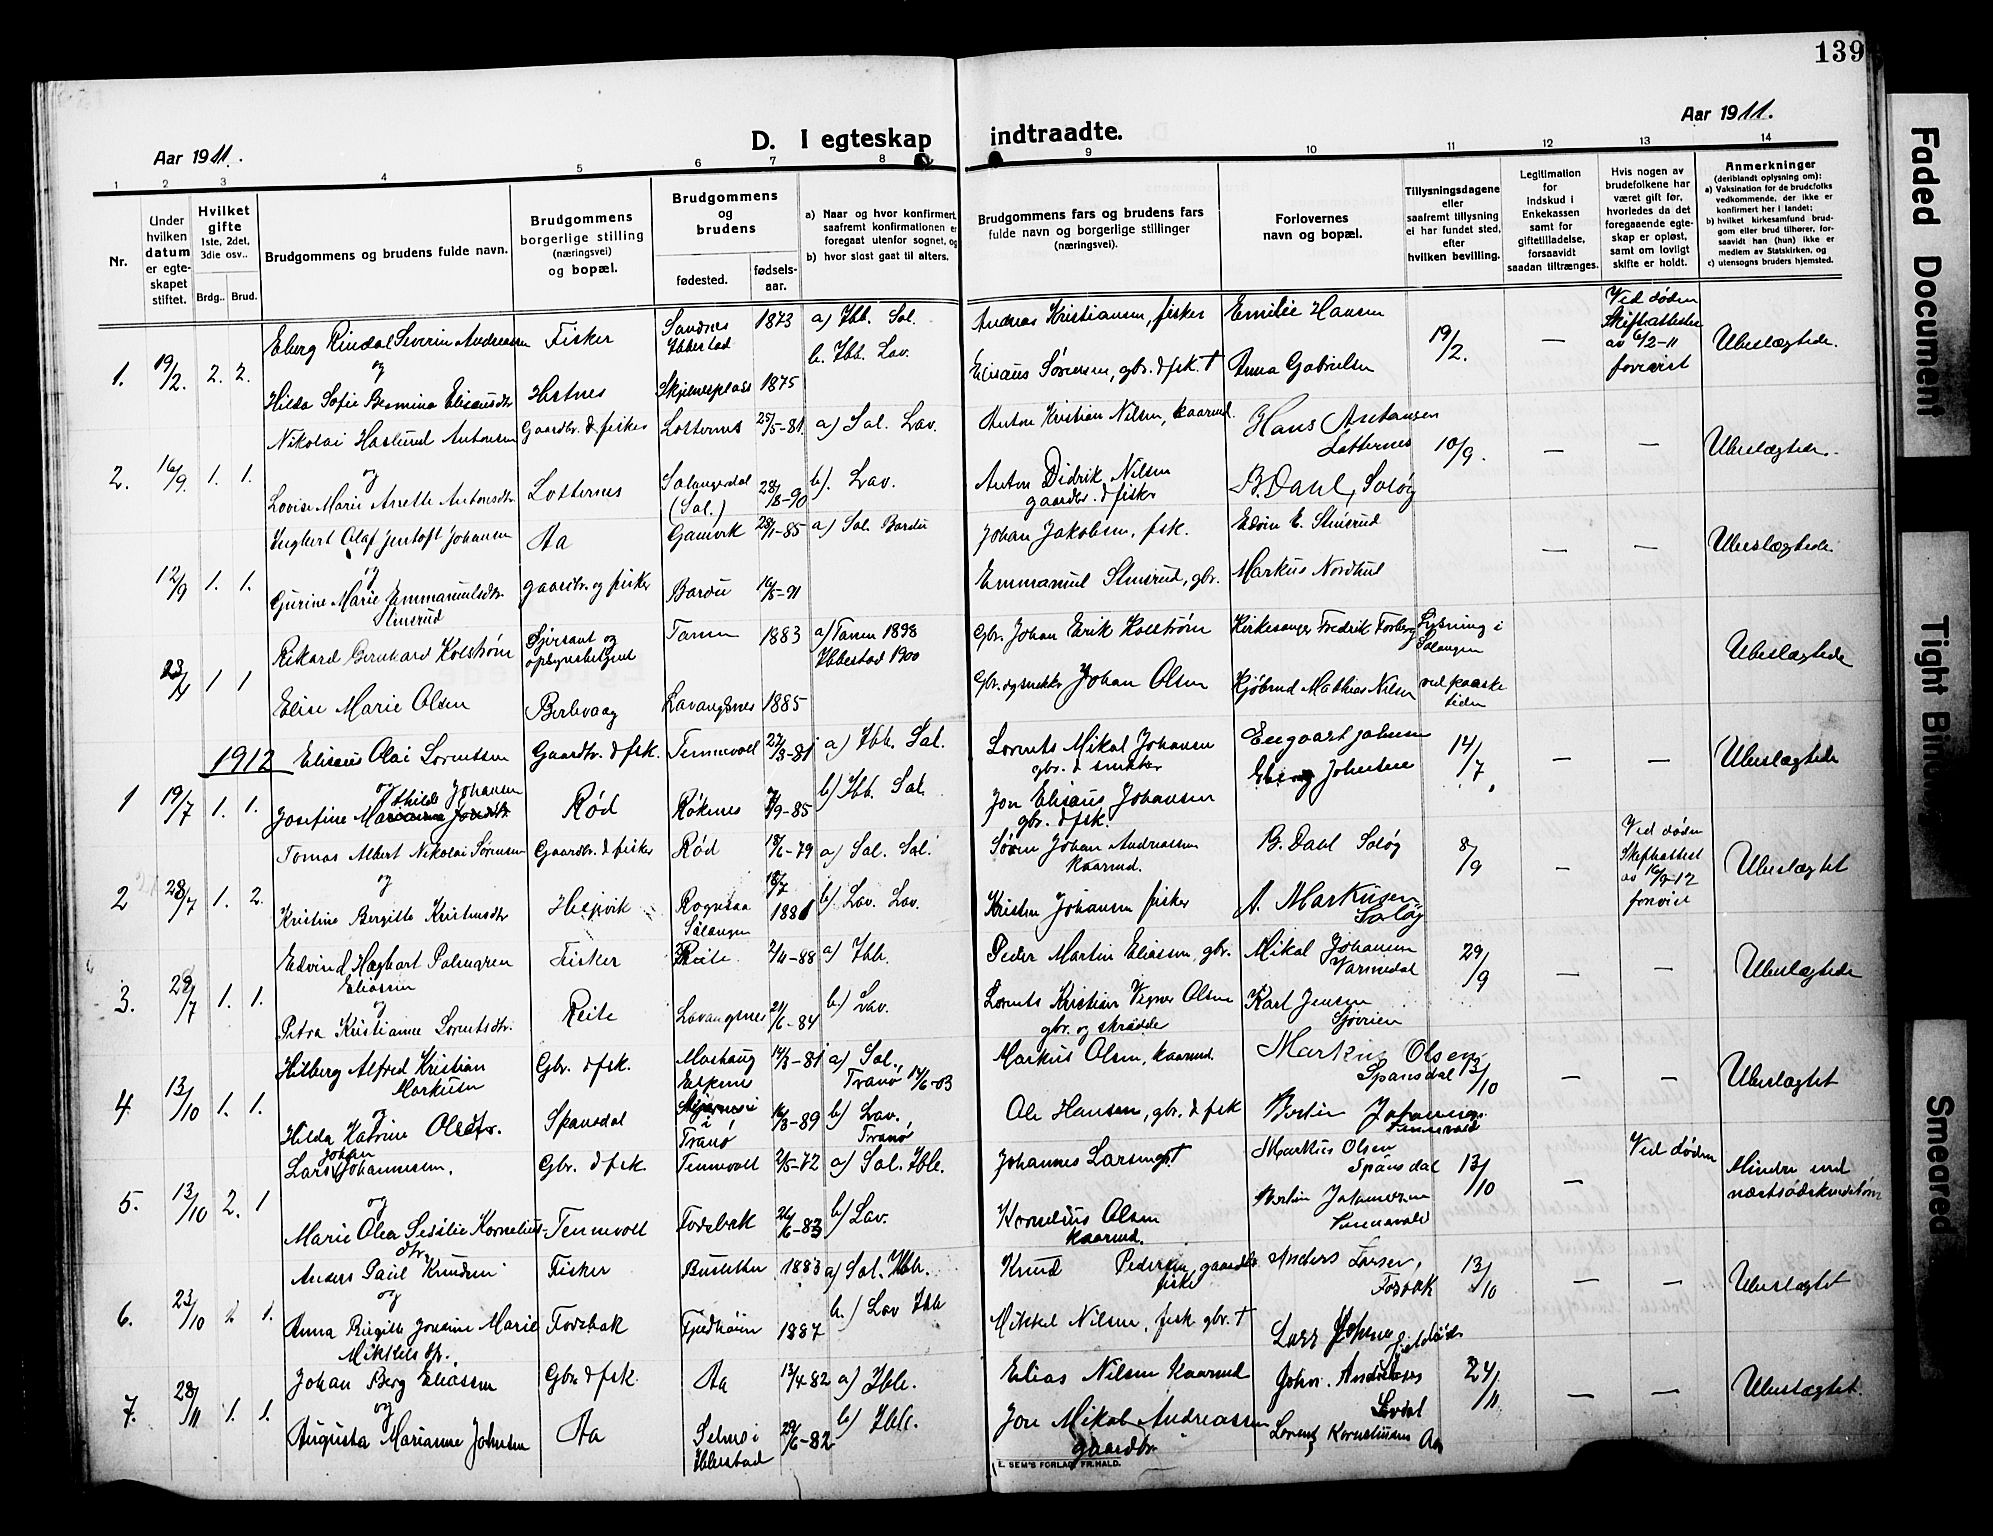 139
Aar 1911.
D. I egteskap indtraadte.
Aar 1911.
1 2 3 4 5 6 7 8 9 10 11 12 13 14
Nr.
Under hvilken datum er egteskapet stiftet.
Hvilket gifte
1ste, 2det, 3die osv..
Brdg.. Brud.
Brudgommens og brudens fulde navn.
Brudgommens borgerlige stilling (næringsvei) og bopæl.
Brudgommens og brudens
fødested.
fødselsaar.
a) Naar og hvor konfirmert, saafremt konfirmationen er foregaat utenfor sognet, og
b) hvor sidst gaat til alters.
Brudgommens fars og brudens fars fulde navn og borgerlige stillinger (næringsvei).
Forlovernes navn og bopæl.
Tillysningsdagene eller saafremt tillysning ei har fundet sted, efter hvilken bevilling.
Legitimation for indskud i Enkekassen samt for giftetilladelse, forsaavidt saadan tiltrænges.
Hvis nogen av brudefolkene har været gift før, hvorledes da det foregaaende egteskap er opløst, samt om lovligt skifte er holdt.
Anmerkninger
(deriblandt oplysning om):
a) Vaksination for de brudefolks vedkommende, der ikke er konfirmert her i landet;
b) hvilket kirkesamfund brudgom eller brud tilhører, forsaavidt han (hun) ikke er medlem av Statskirken, og
c) utensogns bruders hjemsted.
1. 19/2. 2. 2.
Eberg Rindal Severin Andreassen
og
Hilda Sofie Bermina Elisæusdtr
Fisker
Hestnes
Sandnes Ibbestad 1873
Skjelnesplass 1875
a) Ibb. Sal.
b. Ibb. Lav.
Andreas Kristiansen, fisker
Elisæus Sørensen, gbr. & fsk. †
Emilie Hansen
Anna Gabrielsen
19/2.
—
Ved døden
Skifteattester av 6/2-11 forevist
Ubeslægtede.
2. 16/9. 1. 1.
Nikolai Haslund Antonsen
og
Lovise Marie Anette Antonsdtr
Gaardbr. & fisker
Lotternes
Lotternes 25/5-81.
Salangsdal (Sal.) 28/8-90
a) Sal. Lav.
b). Lav.
Anton Kristian Nilsen, kaarmd.
Anton Didrik Nilsen
gaardbr. & fisker
Hans Antonsen
Lotternes
B. Dahl, Soløy
10/9.
—
—
Ubeslægtede.
12/9 1. 1.
Ingbert Olaf Jentoft Johansen
og
Gurine Marie Emmanuelsdtr
Stensrud
Aa
gaardbr. og fisker
Gamvik 28/1-85
Bardu 16/5-91
a) Sal. Bardu
Johan Jakobsen, fsk.
Emmanuel Stensrud, gbr.
Edvin E. Stensrud
Markus Nordhus
—
—
Ubeslægtede.
23/4 1 1
Rikard Bernhard Kolstrøm
Elise Marie Olsen
Sjersant og
Berlevaag
Tanen 1883
Lavangsnes 1885
a) Tanen 1898
Ibbestad 1900
Gbr. Johan Erik Kolstrøm
Gbr. og snekker Johan Olsen
Kirkesanger Fredrik Forberg
Kjøbmd Mathias Nilsen
Lysning i Salangen
ved paasketiden
Ubeslægtede
1912
1 19/7 1. 1.
Elisæus Olai Lorentsen
og
Josefine Mathilde Johansen
Gaardbr. & fsk.
Rød
Tennevoll 27/3-81
Røknes 7/9-85
a) Ibb. Sal.
b) Ibb. Sal.
Lorents Mikal Johansen
gbr. & snekker
Jon Elisæus Johansen
gbr. & fsk.
Engvart Johnsen
14/7
—
—
Ubeslægtede
2 28/7 1. 2.
Tomas Albert Nikolai Sørensen
og
Kristine Bergitte Kristensdtr
Gaardbr. & fisker
Hesjevik
Rød 18/6-79
Rognsaa Salangen 18/7 1881
a) Sal. Sal.
b) Lav. Lav.
Søren Johan Andreassen
kaarmd.
Kristen Johansen fisker
B. Dahl Soløy
A. Markusen
Soløy
8/9
—
Ved døden
Skifteattest av 16/9-12 forvist
Ubeslægtet
3. 28/7 1. 1.
Edvind Hagbart Palmgren
Eliassen
og
Petra Kristianna Lorentsdtr.
Fisker
Reite
Reite 2/11-88
Lavangsnes 21/6-84
a) Ibb.
b) Lav.
Peder Martin Eliassen, gbr.
Lorents Kristian Vigner Olsen
gbr. og skrædder
Mikal Johansen
Varmedal
Karl Jensen
Sjøveien
29/9
—
—
Ubeslægtede
4 13/10 1. 1.
Hilberg Alfred Kristian
Markusen
og
Hilda Katrine Olsdtr.
Gbr. & fsk.
Spansdal
Moshaug 14/3-81
Tranø 16/3-89
a) Sal.
Tranø 14/6-03
b) Lav.
Tranø
Markus Olsen, kaarmd.
Ole Hansen, gbr. & fsk
Markus Olsen
Spansdal
Bertin Johannesen
Tennevold
13/10
—
—
Ubeslægtet
5. 13/10 2. 1
Lars Johan Johannesen.
og
Marie Olea Sesilie Korneliusdtr.
Gbr. & fsk.
Tennevoll
Tennevoll 2/5-72
Fossbak 26/6-83
a) Sal. Ibb.
b) Lav.
Johannes Larsen †
Kornelius Olsen
kaarmd.
Markus Olsen
Spansdal
Bertin Johannesen
Tennevold
13/10
—
Ved døden
Mindre end
6. 23/10 1.
Anders Paul Knudsen
og
Anna Birgitte Jordine Marie
Mikkelsdtr.
Fisker
Fossbak
Buslettn 1883
Fjeldhøien 1887
a) Sal. Ibb.
b.) Lav Ibb
Knud Pedersen, gaardbr.
fisker
Mikkel Nilsen, fisk. gbr. †
Anders Larsen,
Fosbak
13/10
—
—
Ubeslægtet
7. 28/11 1. 1.
Johan Berg Eliassen
og
Augusta Marianne Johnsen
Gbr & fsk.
Aa
Aa 13/4-82
Selnes i Ibbestad 29/6-82
a) Ibb.
b) Ibb.
Elias Nilsen kaarmd
Jon Mikal Andreassen
gaardbr.
Johan Andreassen
Lorentz Korneliussen Aa
24/11
—
—
Ubeslægtet.
E. SEM'S FORLAG, FR.HALD.
Faded Document
Tight Binding
Smeared